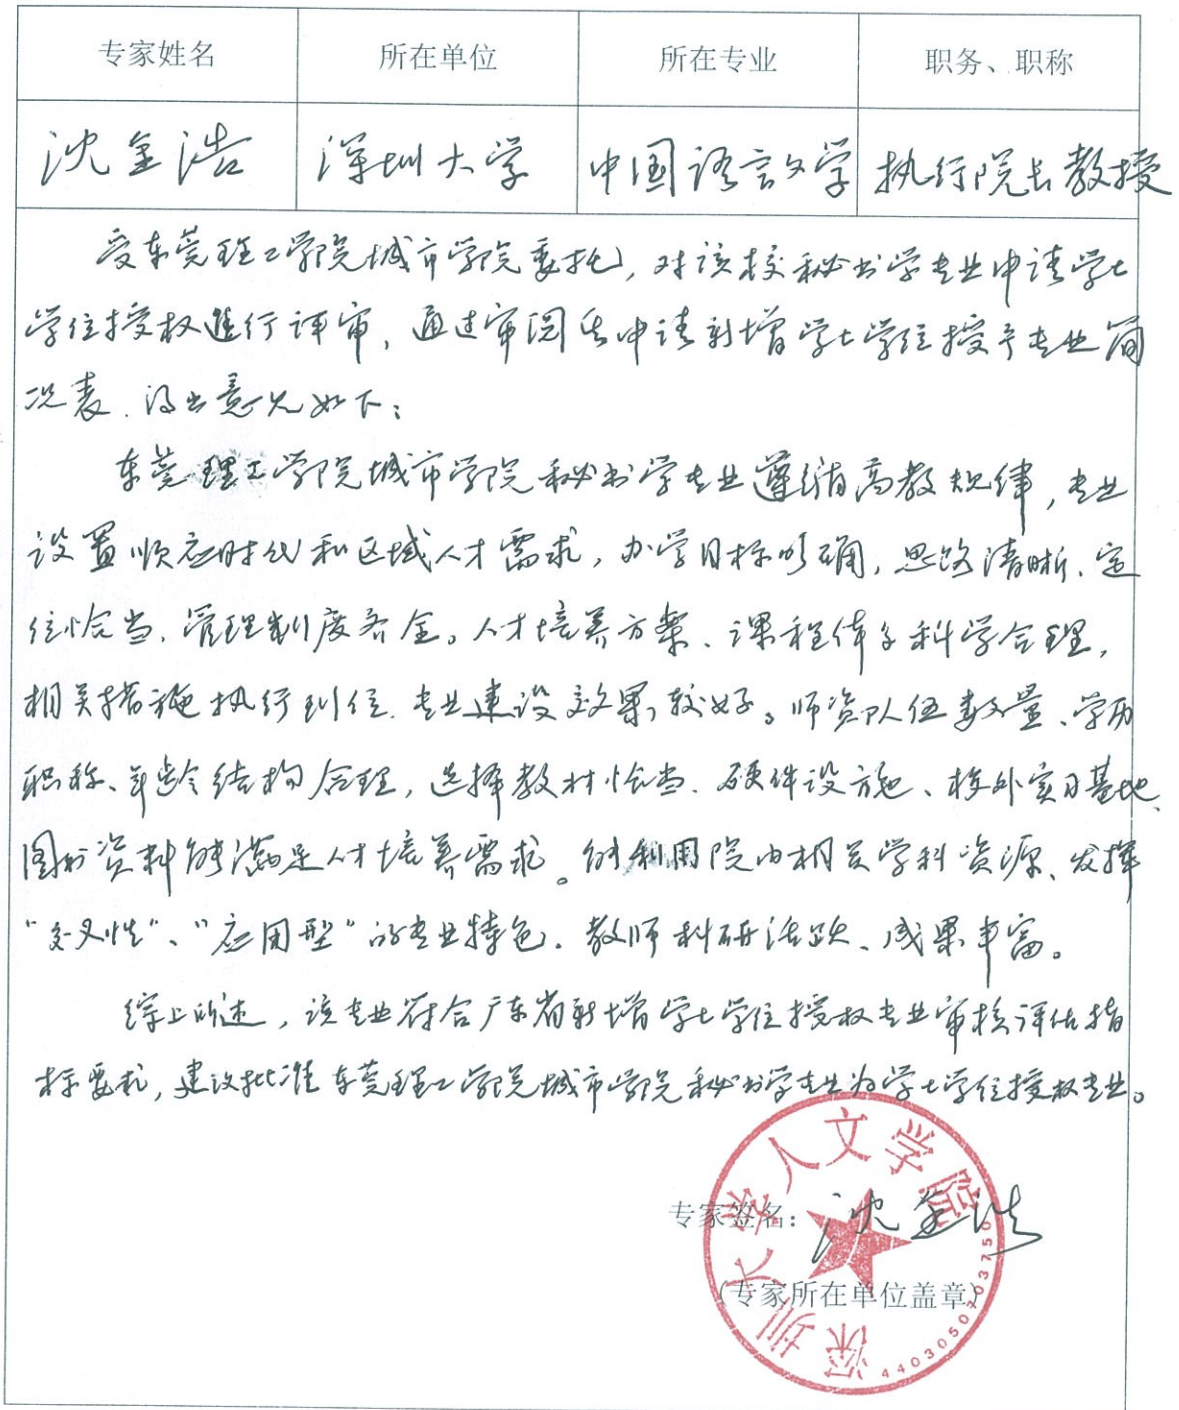 专家姓名 所在单位 所在专业 职务、职称
沈金浩 深圳大学 中国语言文学 执行院长教授
受东莞理工学院城市学院委托,对该校秘书学专业申请学士
学位授权进行评审,通过审阅其申请新增学士学位授予专业简
况表,得出意见如下:
东莞理工学院城市学院秘书学专业遵循高教规律,专业
设置顺应时代和区域人才需求,办学目标明确,思路清晰、定
位恰当,管理制度齐全。人才培养方案、课程体系科学合理,
相关措施执行到位,专业建设效果较好。师资队伍数量、学历
职称、年龄结构合理,选择教材恰当,硬件设施、校外实习基地、
图书资料能满足人才培养需求。能利用院内相关学科资源、发挥
“交叉性”、“应用型”的专业特色。教师科研活跃、成果丰富。
综上所述,该专业符合广东省新增学士学位授权专业审核评估指
标要求,建议批准东莞理工学院城市学院秘书学专业为学士学位授权专业。
专家签名:沈金浩
(专家所在单位盖章)
深圳大学人文学院
4403050703750